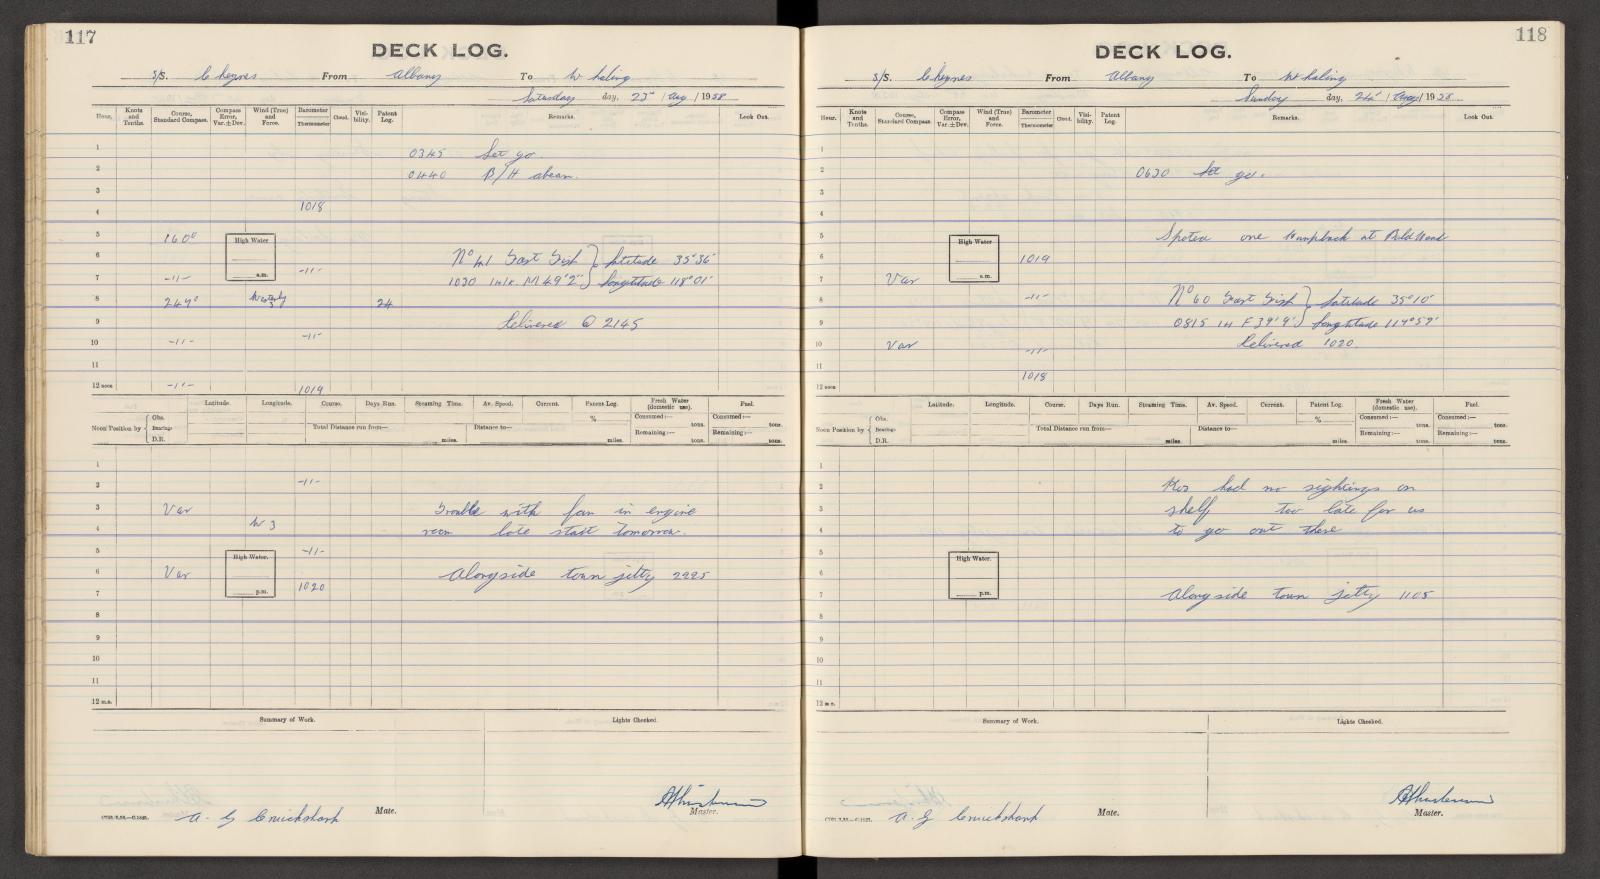 117
DECK LOG.
S/S. Cheynes From Albany To Whaling
Saturday day, 23rd / Aug / 1958
Hour. Knots and Tenths. Course, Standard Compass. Compass Error, Var. ± Dev. Wind (True) and Force. Barometer Thermometer Cloud. Visibility. Patent Log. Remarks. Look Out.
1 0345 Let go.
2 0440 B/H abeam.
3
4 1018
5 160°
High Water
a.m.
6 No 41 Fast Fish } Latitude 35°36'
7 -11- -11- 1030 M 49'2" } Longtitude 118°01'
8 249° Westerly 3 24
9 Delivered @ 2145
10 -11- -11-
11
12 noon -11- 1019
Latitude. Longitude. Course. Days Run. Steaming Time. Av. Speed. Current. Patent Log. Fresh Water (domestic use). Fuel.
Noon Position by { Obs. Bearings D.R.
Total Distance run from— miles. Distance to— miles. %
Consumed:— tons. Remaining:— tons. Consumed:— tons. Remaining:— tons.
1
2 -11-
3 Var Trouble with fan in engine
4 W 3 room late start tomorrow.
5 -11-
High Water.
p.m.
6 Var Alongside town jetty 2225
7 1020
8
9
10
11
12 m.n.
Summary of Work. Lights Checked.
A. G Cruickshank Mate. Master.
118
DECK LOG.
S/S. Cheynes From Albany To Whaling
Sunday day, 24th / Aug / 1958
Hour. Knots and Tenths. Course, Standard Compass. Compass Error, Var. ± Dev. Wind (True) and Force. Barometer Thermometer Cloud. Visibility. Patent Log. Remarks. Look Out.
1
2 0630 Let go.
3
4
5 Spoted one Humpback at Bald Head
High Water
a.m.
6 1019
7 Var
8 -11- No 60 Fast Fish } Latitude 35°10'
9 0815 1H F 39'9" } Longtitude 117°59'
10 Var -11- Delivered 1020.
11
12 noon 1018
Latitude. Longitude. Course. Days Run. Steaming Time. Av. Speed. Current. Patent Log. Fresh Water (domestic use). Fuel.
Noon Position by { Obs. Bearings D.R.
Total Distance run from— miles. Distance to— miles. %
Consumed:— tons. Remaining:— tons. Consumed:— tons. Remaining:— tons.
1
2 Kos had no sightings on
3 shelf too late for us
4 to go out there
5
High Water.
p.m.
6
7 Alongside town jetty 1105
8
9
10
11
12 m.n.
Summary of Work. Lights Checked.
A. G Cruickshank Mate. Master.